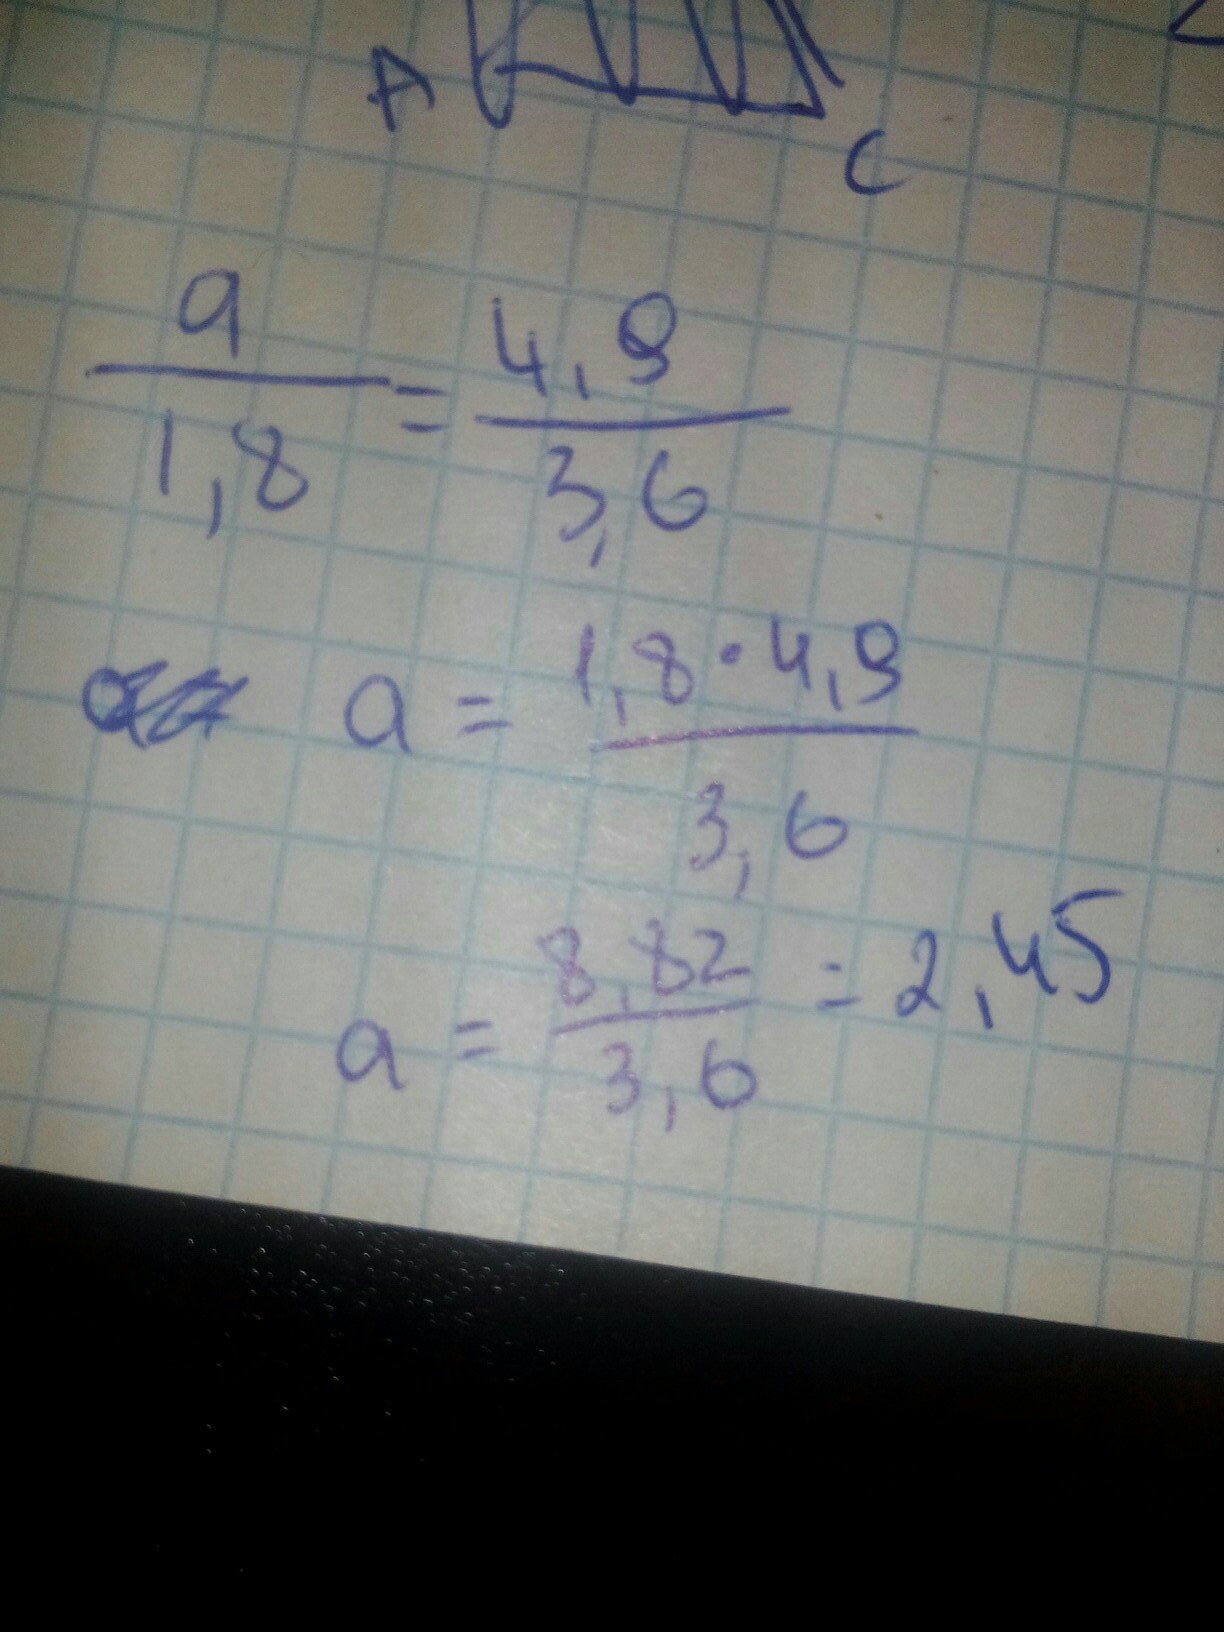 A
C
a/1,8 = 4,9/3,6
a = 1,8·4,9/3,6
a = 8,82/3,6 = 2,45